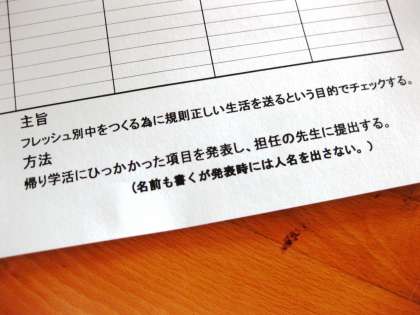 主旨
フレッシュ別中をつくる為に規則正しい生活を送るという目的でチェックする。
方法
帰り学活にひっかかった項目を発表し、担任の先生に提出する。
（名前も書くが発表時には人名を出さない。）